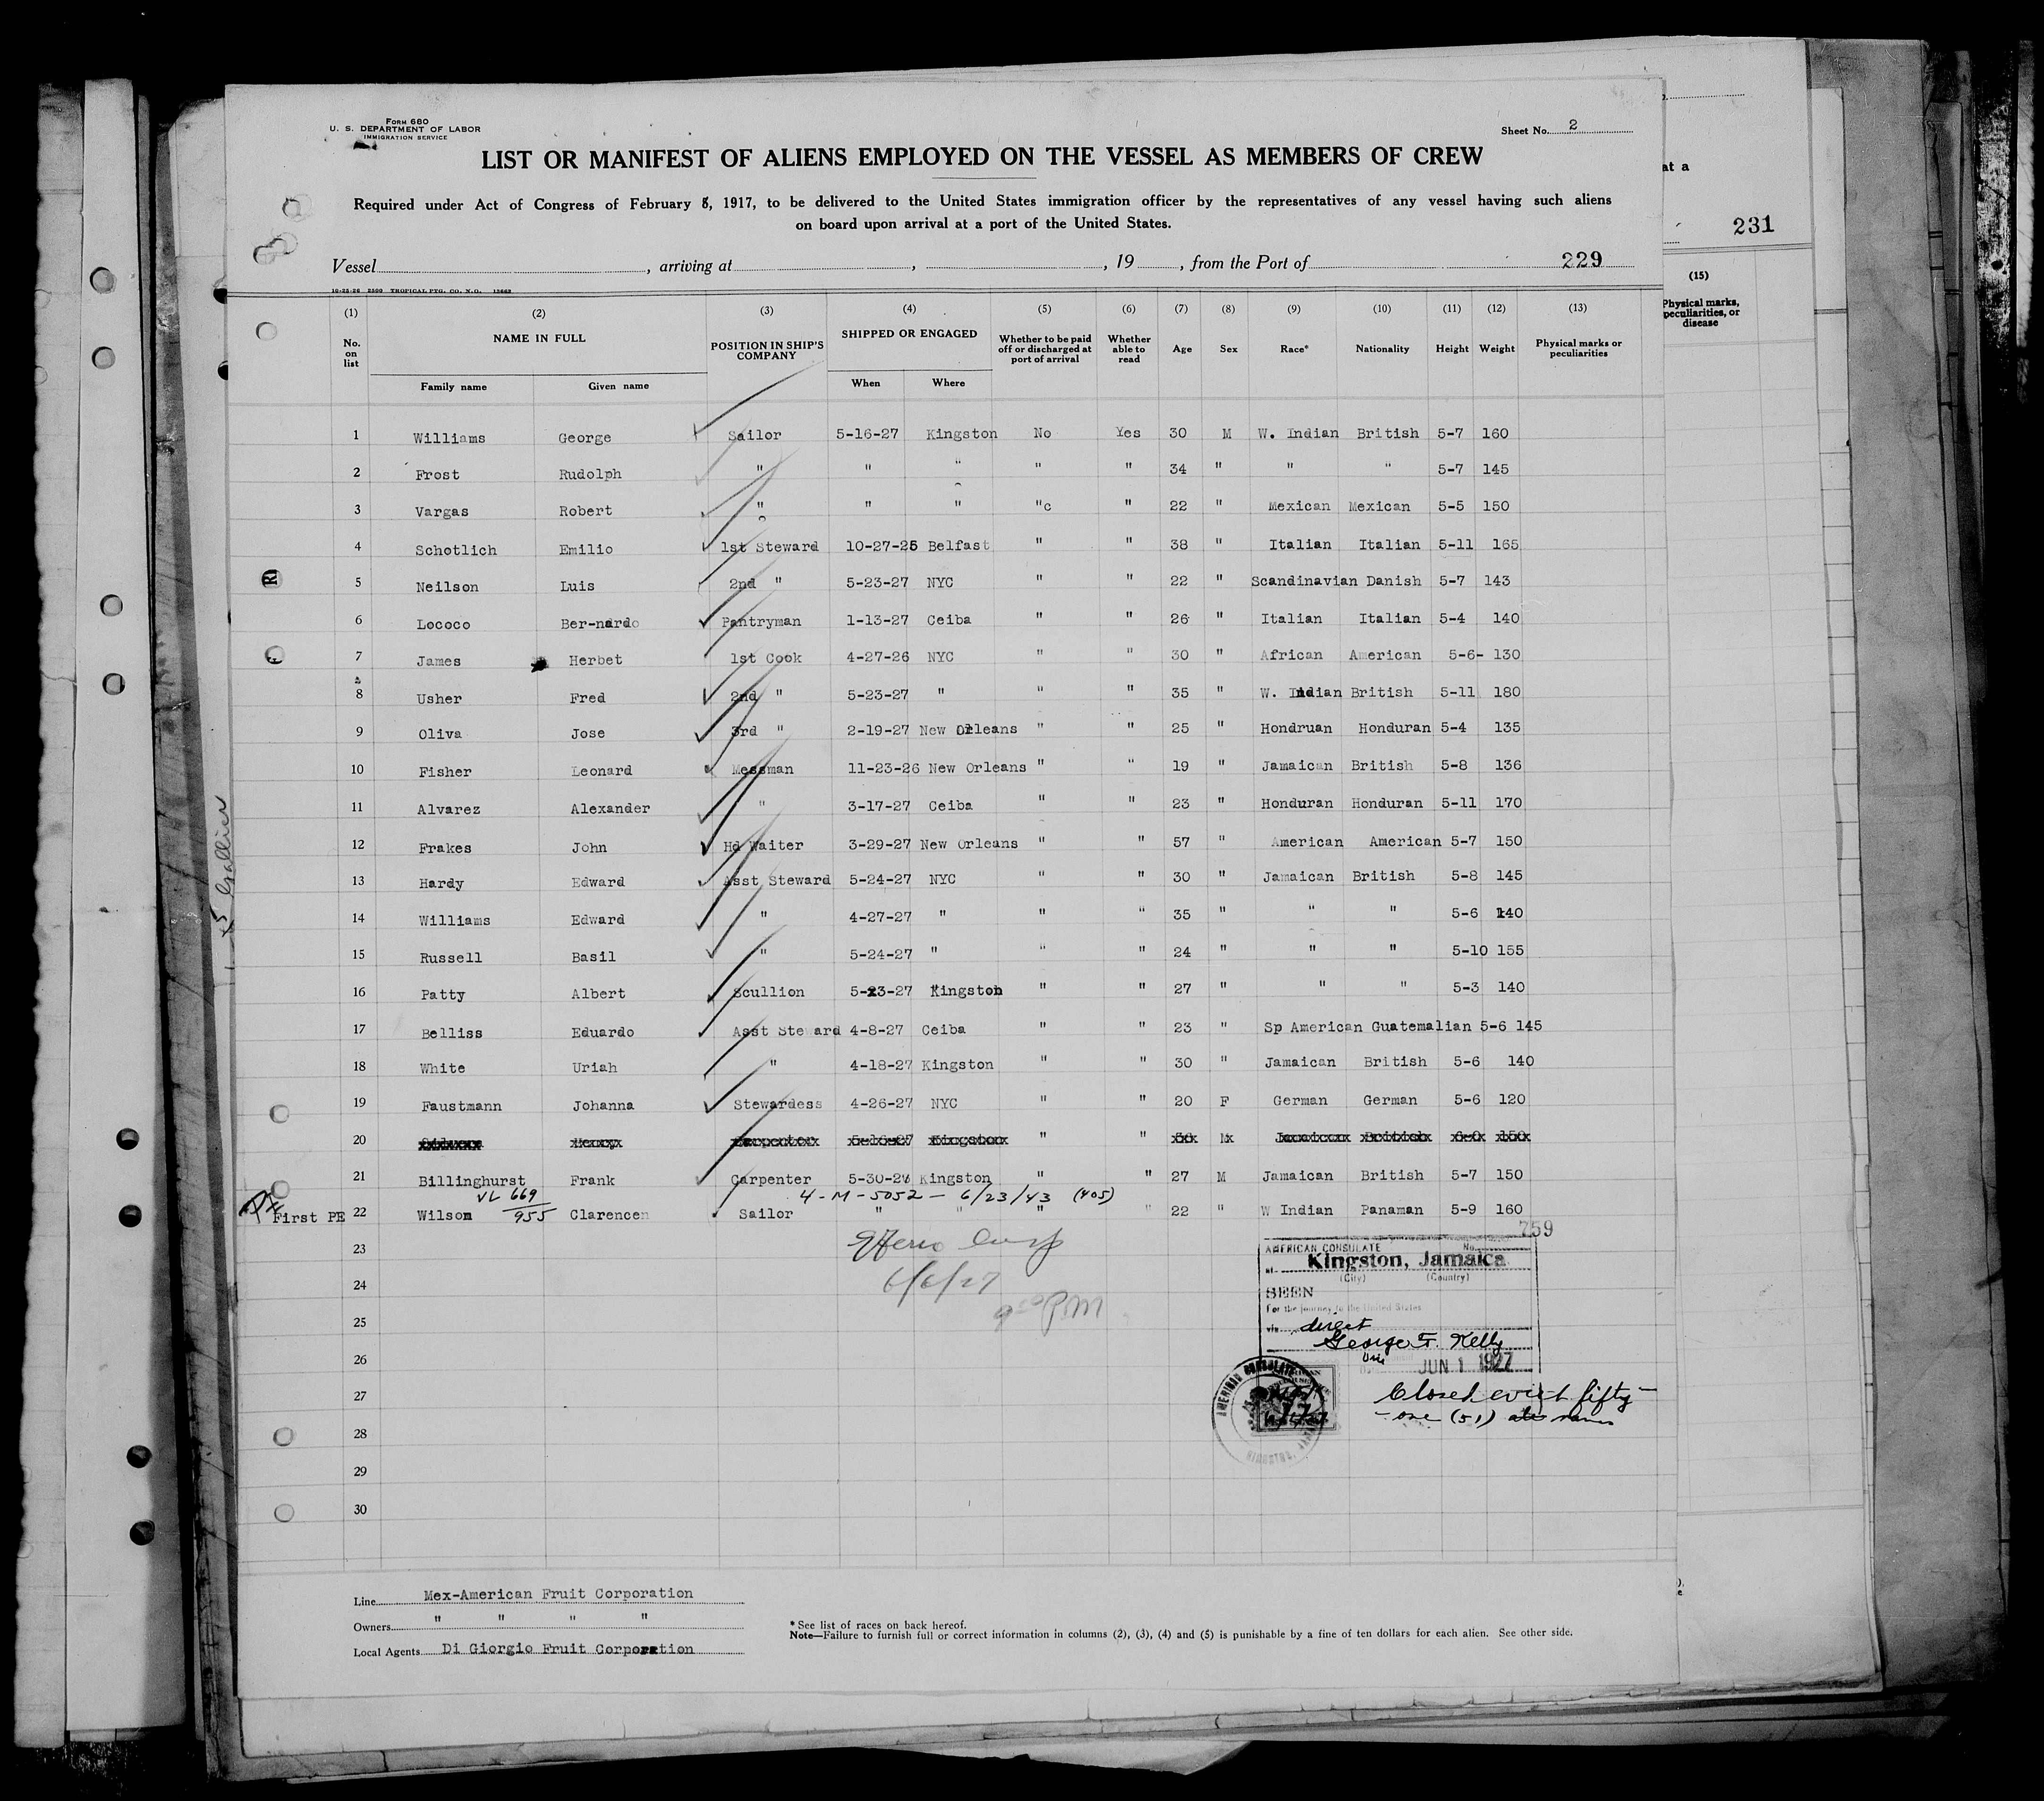 Form 680
U. S. DEPARTMENT OF LABOR
IMMIGRATION SERVICE
Sheet No. 2
LIST OR MANIFEST OF ALIENS EMPLOYED ON THE VESSEL AS MEMBERS OF CREW
at a
Required under Act of Congress of February 5, 1917, to be delivered to the United States immigration officer by the representatives of any vessel having such aliens
on board upon arrival at a port of the United States.
231
Vessel , arriving at , , 19 , from the Port of 229
10-25-26 2500 TROPICAL PTG. CO. N.O. 12662
(1) (2) (3) (4) (5) (6) (7) (8) (9) (10) (11) (12) (13) (15)
No. on list NAME IN FULL POSITION IN SHIP'S COMPANY SHIPPED OR ENGAGED Whether to be paid off or discharged at port of arrival Whether able to read Age Sex Race* Nationality Height Weight Physical marks or peculiarities Physical marks, peculiarities, or disease
Family name Given name When Where
1 Williams George Sailor 5-16-27 Kingston No Yes 30 M W. Indian British 5-7 160
2 Frost Rudolph " " " " " 34 " " " 5-7 145
3 Vargas Robert " " " "c " 22 " Mexican Mexican 5-5 150
4 Schotlich Emilio 1st Steward 10-27-25 Belfast " " 38 " Italian Italian 5-11 165
5 Neilson Luis 2nd " 5-23-27 NYC " " 22 " Scandinavian Danish 5-7 143
6 Lococo Ber-nardo Pantryman 1-13-27 Ceiba " " 26 " Italian Italian 5-4 140
7 James Herbet 1st Cook 4-27-26 NYC " " 30 " African American 5-6- 130
8 Usher Fred 2nd " 5-23-27 " " " 35 " W. Indian British 5-11 180
9 Oliva Jose 3rd " 2-19-27 New Orleans " " 25 " Hondruan Honduran 5-4 135
10 Fisher Leonard Messman 11-23-26 New Orleans " " 19 " Jamaican British 5-8 136
11 Alvarez Alexander " 3-17-27 Ceiba " " 23 " Honduran Honduran 5-11 170
12 Frakes John Hd Waiter 3-29-27 New Orleans " " 57 " American American 5-7 150
13 Hardy Edward Asst Steward 5-24-27 NYC " " 30 " Jamaican British 5-8 145
14 Williams Edward " 4-27-27 " " " 35 " " " 5-6 140
15 Russell Basil " 5-24-27 " " " 24 " " " 5-10 155
16 Patty Albert Scullion 5-23-27 Kingston " " 27 " " " 5-3 140
17 Belliss Eduardo Asst Steward 4-8-27 Ceiba " " 23 " Sp American Guatemalian 5-6 145
18 White Uriah " 4-18-27 Kingston " " 30 " Jamaican British 5-6 140
19 Faustmann Johanna Stewardess 4-26-27 NYC " " 20 F German German 5-6 120
20 " "
21 Billinghurst Frank Carpenter 5-30-28 Kingston " " 27 M Jamaican British 5-7 150
VL 669 4-M-5052 - 6/23/43 (405)
First PE 22 Wilson 955 Clarencen Sailor " " " " 22 " W Indian Panaman 5-9 160
759
23
24
25
26
27
28
29
30
6/6/27
9 PM
AMERICAN CONSULATE No.
at Kingston, Jamaica
(City) (Country)
SEEN
For the journey to the United States
via direct
George F. Kelly
JUN 1 1927
AMERICAN CONSULATE
KINGSTON,
Closed fifty-
-one (51)
Line Mex-American Fruit Corporation
Owners " " " "
Local Agents Di Giorgio Fruit Corporation
* See list of races on back hereof.
Note—Failure to furnish full or correct information in columns (2), (3), (4) and (5) is punishable by a fine of ten dollars for each alien. See other side.